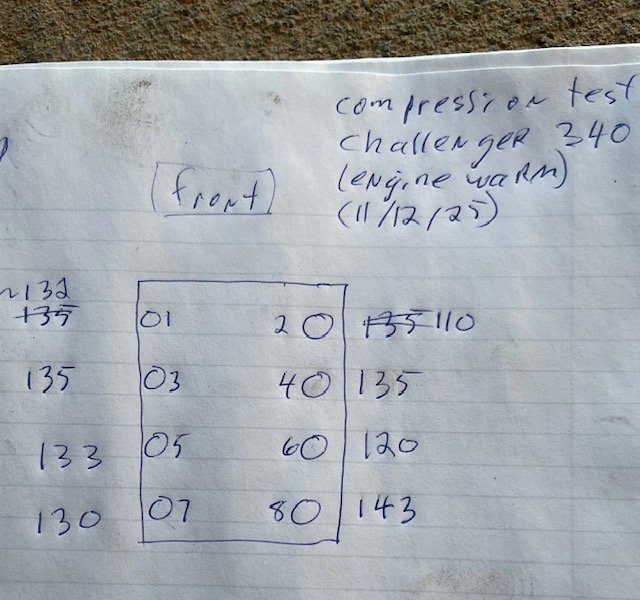 compression test
challenger 340
(engine warm)
(11/12/25)
(front)
~132
135
01 20 135 110
135 03 40 135
133 05 60 120
130 07 80 143